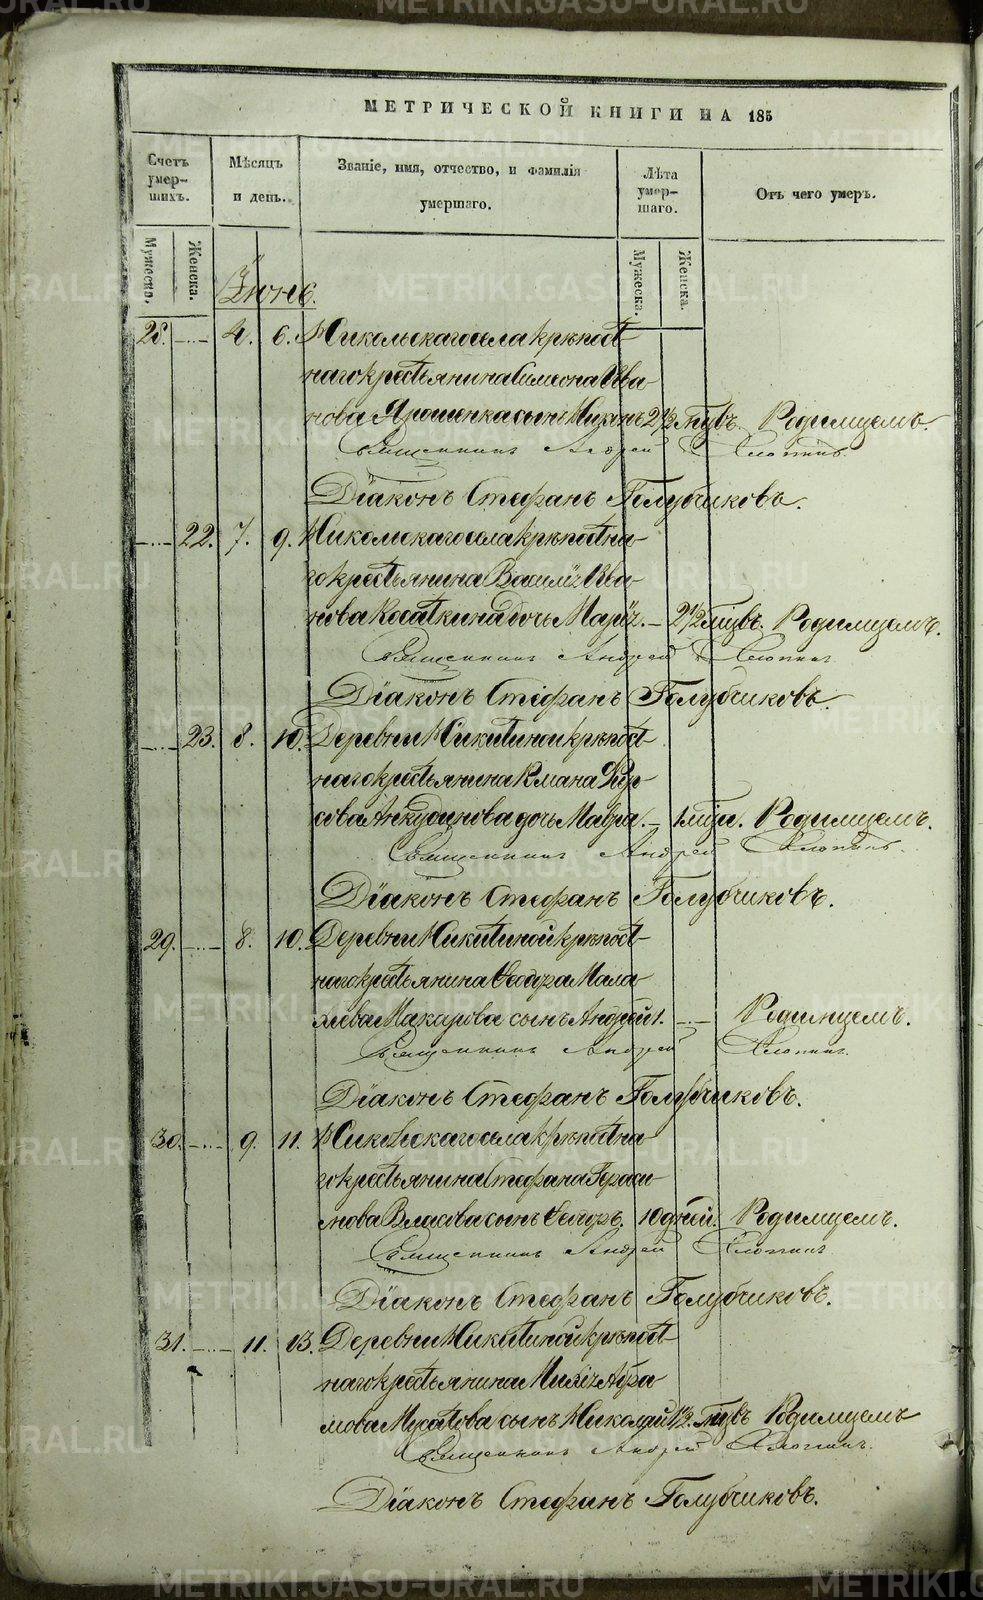 METRIKI.GASO-URAL.RU
МЕТРИЧЕСКОЙ КНИГИ НА 185
Счетъ умер-шихъ.
Мѣсяцъ и день.
Званіе, имя, отчество, и фамилія умершаго.
Лѣта умер-шаго.
Отъ чего умеръ.
Мужеска.
Женска.
Мужеска.
Женска.
Іюнь.
28. 4. 6. Никольскаго села крѣпост-
наго крестьянина Симеона Ива-
нова Ярошенка сынъ 2 1/2 Родимцемъ.
Священникъ Андрей Хлопинъ
Діаконъ Стефанъ Голубчиковъ.
22. 7. 9. Никольскаго села крѣпостна-
го крестьянина Василія Ива-
нова Косаткина дочь Марія. 2 1/2 Родимцемъ.
Священникъ Андрей Хлопинъ
Діаконъ Стефанъ Голубчиковъ.
23. 8. 10. Деревни Никитиной крѣпост-
наго крестьянина Романа Фир-
сова Анкудинова дочь Мавра. 1 Родимцемъ.
Священникъ Андрей Хлопинъ.
Діаконъ Стефанъ Голубчиковъ.
29. 8. 10. Деревни Никитиной крѣпост-
наго крестьянина Ѳеодора Мала-
хіева Макарова сынъ Андрей 1. Родимцемъ.
Священникъ Андрей Хлопинъ.
Діаконъ Стефанъ Голубчиковъ.
30. 9. 11. Никольскаго села крѣпостна-
го крестьянина Стефана Гераси-
мова Власова сынъ 10 дней. Родимцемъ.
Священникъ Андрей Хлопинъ
Діаконъ Стефанъ Голубчиковъ.
31. 11. 13. Деревни Никитиной крѣпост-
наго крестьянина Абра-
мова Мусатова сынъ Николай 1 1/2. Родимцемъ
Священникъ Андрей Хлопинъ.
Діаконъ Стефанъ Голубчиковъ.